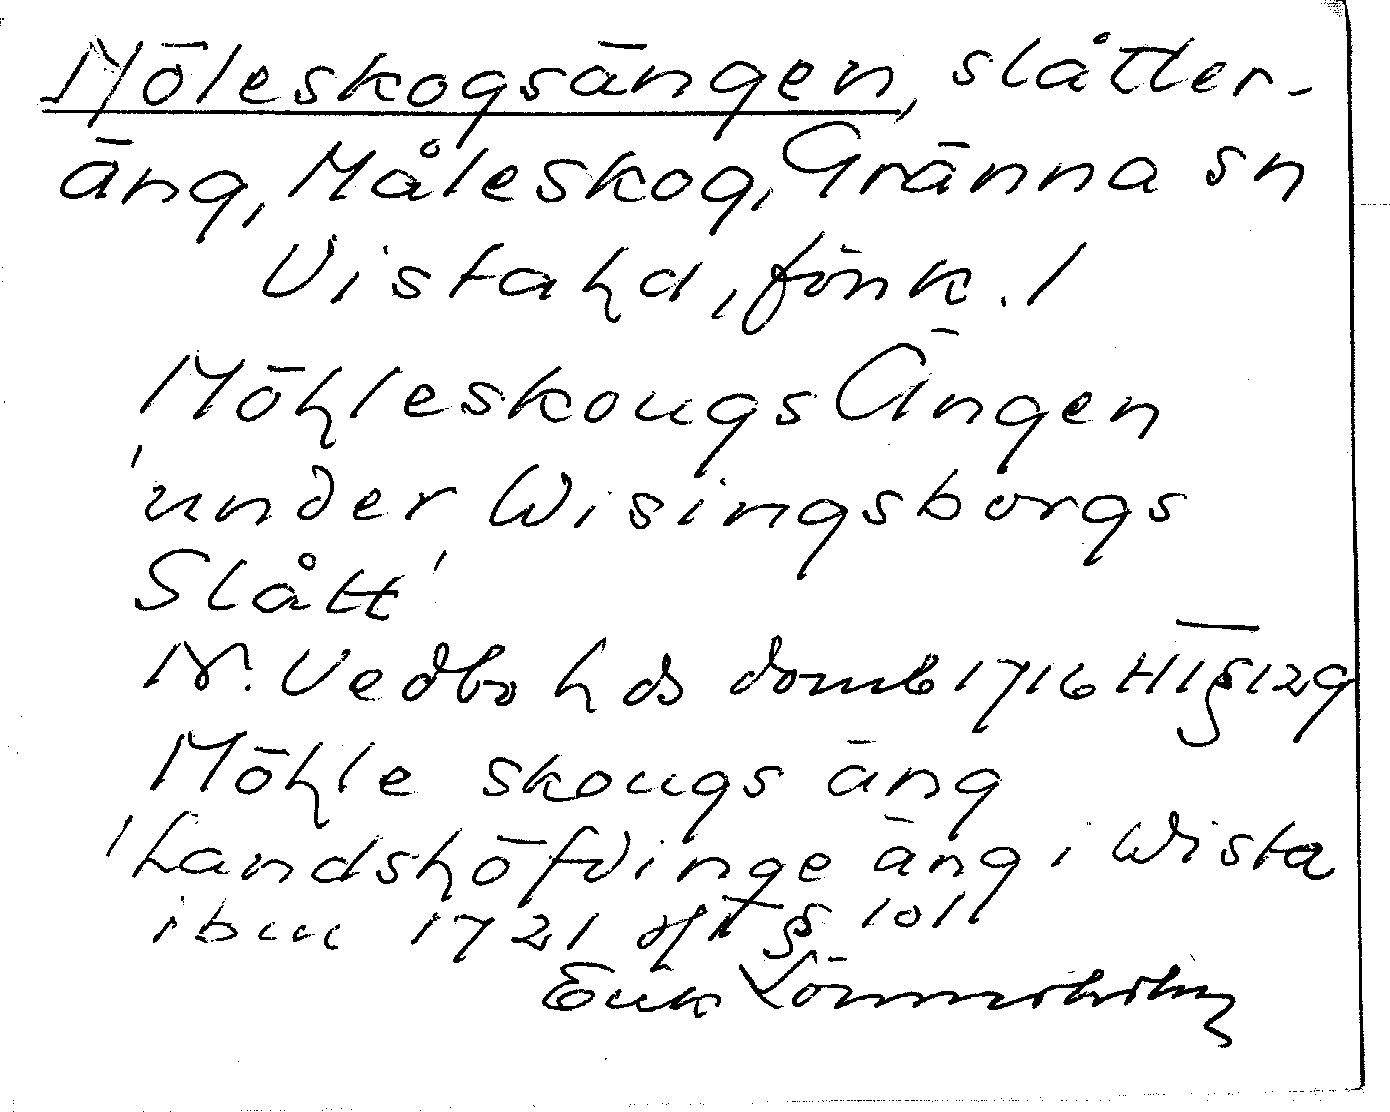 Möleskogsängen, slåtter-
äng, Måleskog, Gränna sn
Vista hd, Jönk. l
Möhleskougs Ängen
'under Wisingsborgs
Slått'
N. Vedbo hds domb 1716 HT § 129
Möhle skougs äng
'Landshöfdinge äng i Wista
ibm 1721 HT § 101
Erik